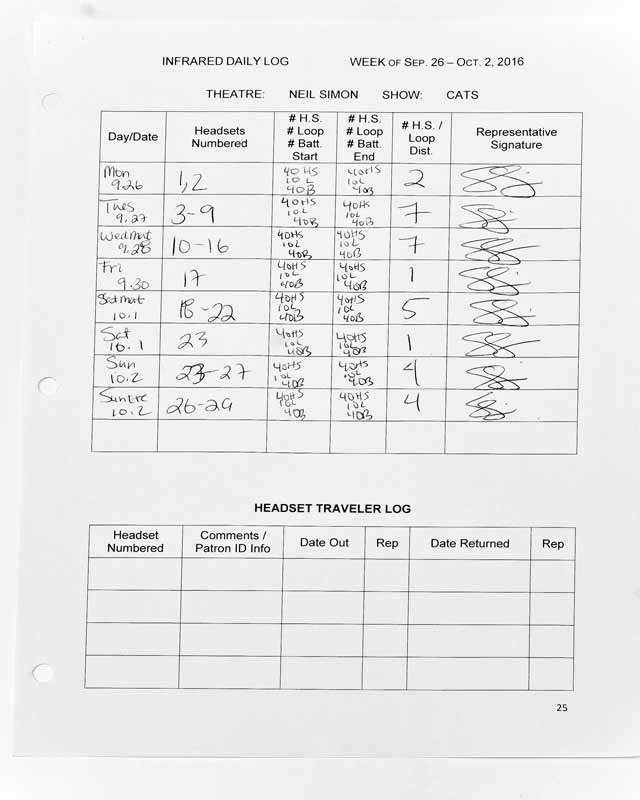 INFRARED DAILY LOG WEEK OF SEP. 26 – OCT. 2, 2016
THEATRE: NEIL SIMON SHOW: CATS
Day/Date
Headsets
Numbered
# H.S.
# Loop
# Batt.
Start
# H.S.
# Loop
# Batt.
End
# H.S. /
Loop
Dist.
Representative
Signature
Mon
9.26
1,2
40HS
10L
40B
40HS
10L
40B
2
Tues
9.27
3-9
40HS
10L
40B
40HS
10L
40B
7
Wed mat
9.28
10-16
40HS
10L
40B
40HS
10L
40B
7
Fri
9.30
17
40HS
10L
40B
40HS
10L
40B
1
Sat mat
10.1
18-22
40HS
10L
40B
40HS
10L
40B
5
Sat
10.1
23
40HS
10L
40B
40HS
10L
40B
1
Sun
10.2
23-27
40HS
10L
40B
40HS
10L
40B
4
Sun
10.2
26-29
40HS
10L
40B
40HS
10L
40B
4
HEADSET TRAVELER LOG
Headset
Numbered
Comments /
Patron ID Info
Date Out
Rep
Date Returned
Rep
25